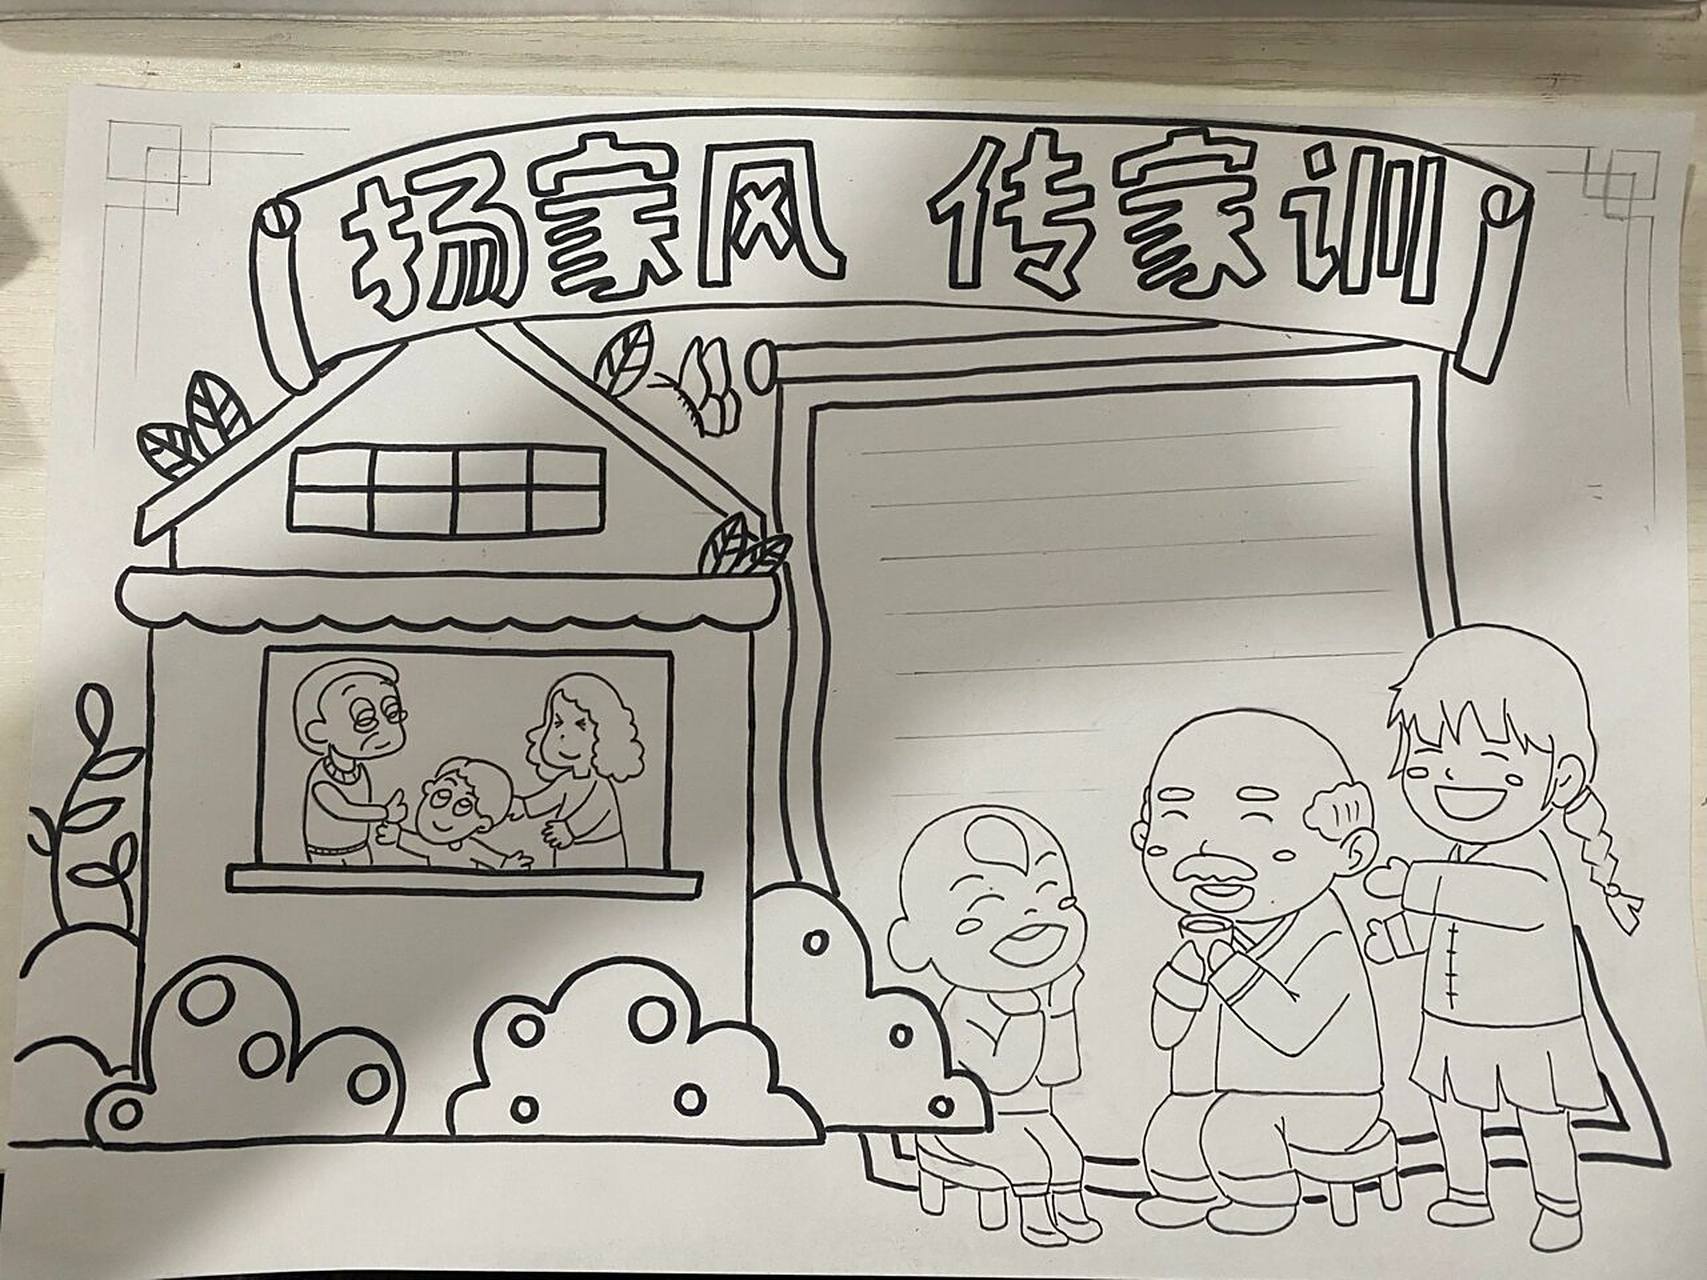 扬家风 传家训